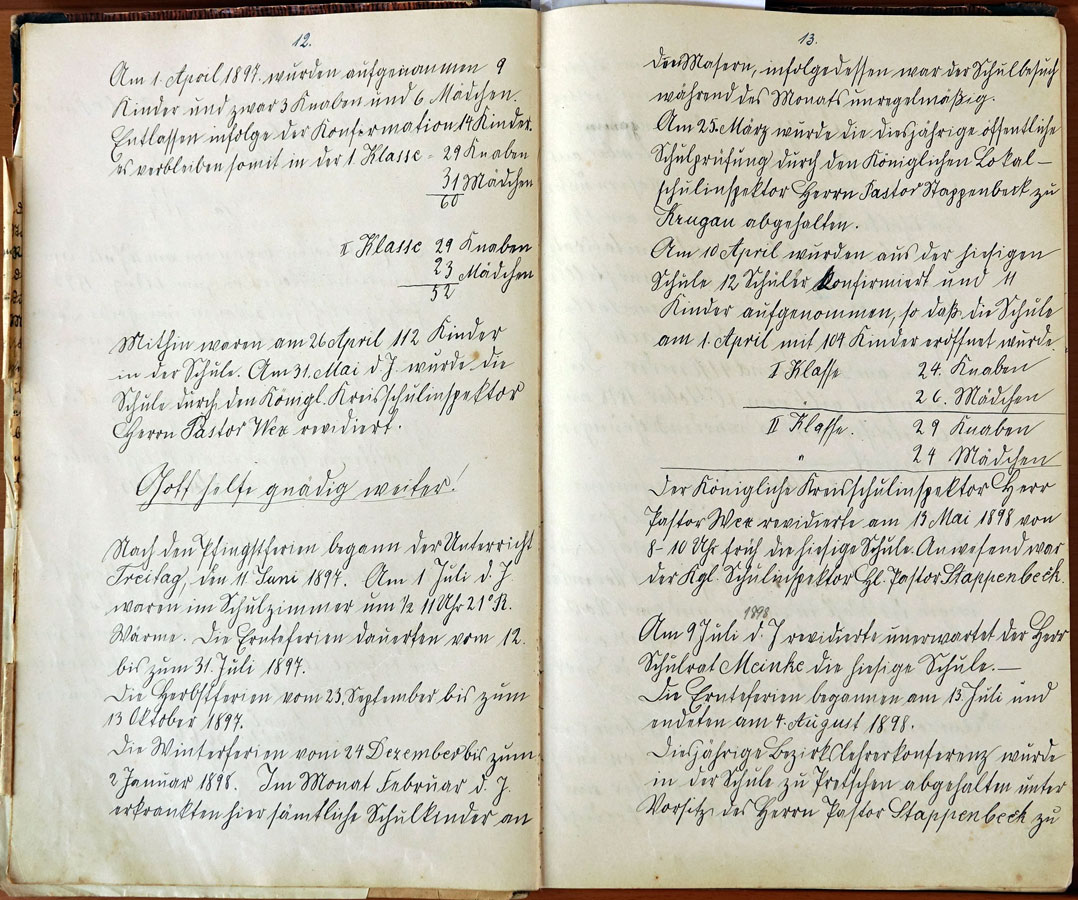 12.
Am 1. April 1897. wurden aufgenommen 9
Kinder und zwar 3 Knaben und 6 Mädchen.
Entlassen infolge der Konfirmation 14 Kinder.
Es verbleiben somit in der 1. Klasse = 29 Knaben
31 Mädchen
60
II Klasse 29 Knaben
23 Mädchen
52
Mithin waren am 26 April 112 Kinder
in der Schule. Am 31. Mai d. J. wurde die
Schule durch den Königl. Kreisschulinspektor
Herrn Pastor Wex revidiert.
Gott helfe gnädig weiter!
Nach den Pfingstferien begann der Unterricht
Freitag, den 11. Juni 1897. Am 1 Juli d. J.
waren im Schulzimmer um ½ 11 Uhr 21° R.
Wärme. Die Ernteferien dauerten vom 12.
bis zum 31. Juli 1897.
Die Herbstferien vom 23. September bis zum
13 Oktober 1897.
Die Winterferien vom 24 Dezember bis zum
2 Januar 1898. Im Monat Februar d. J.
erkrankten hier sämtliche Schulkinder an
13.
den Masern, infolgedessen war der Schulbesuch
während des Monats unregelmäßig.
Am 25. März wurde die diesjährige öffentliche
Schulprüfung durch den Königlichen Lokal-
schulinspektor Herrn Pastor Stappenbeck zu
Krugau abgehalten.
Am 10 April wurden aus der hiesigen
Schule 12 Schüler konfirmiert und 11
Kinder aufgenommen, so daß die Schule
am 1. April mit 104 Kinder eröffnet wurde.
I Klasse 24. Knaben
" 26. Mädchen
II Klasse. 29 Knaben
" 24 Mädchen
Der Königliche Kreisschulinspektor Herr
Pastor Wex revidierte am 13 Mai 1898 von
8-10 Uhr früh die hiesige Schule. Anwesend war
der Kgl. Schulinspektor H. Pastor Stappenbeck.
1898
Am 9 Juli d. J revidierte unerwartet der Herr
Schulrat Meinke die hiesige Schule. —
Die Ernteferien begannen am 13. Juli und
endeten am 4. August 1898.
Diesjährige Bezirkslehrerkonferenz wurde
in der Schule zu Pretschen abgehalten unter
Vorsitz des Herrn Pastor Stappenbeck zu